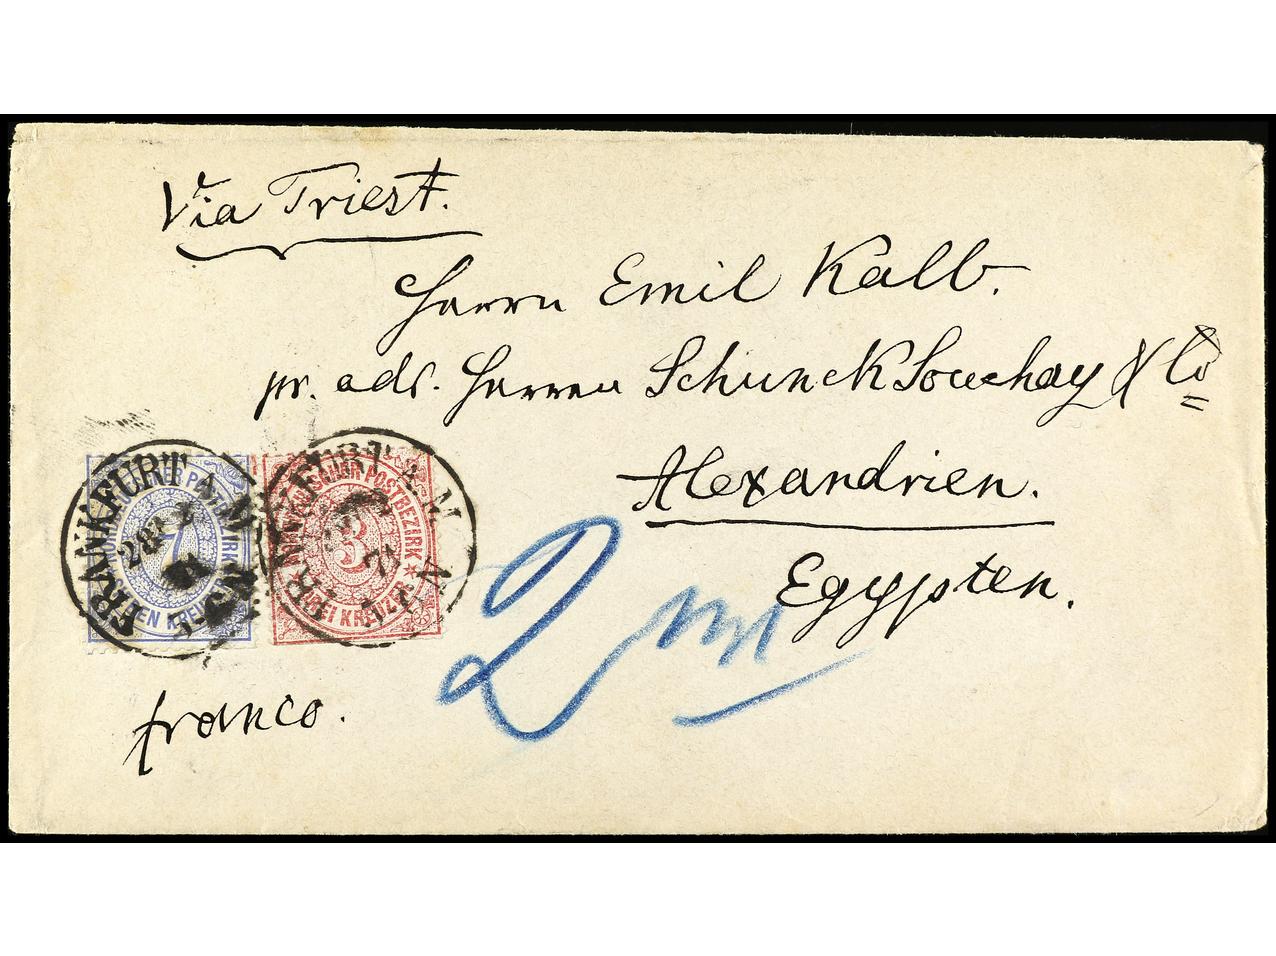 Via Triest.
Herrn Emil Kalb.
pr. adr. Herren Schunck Souchay & Co
Alexandrien.
Egypten.
franco.
2
FRANKFURT A. M.
7
KREUZER
FRANKFURT A. M.
71
NORDDEUTSCHER POSTBEZIRK
3
DREI KREUZER